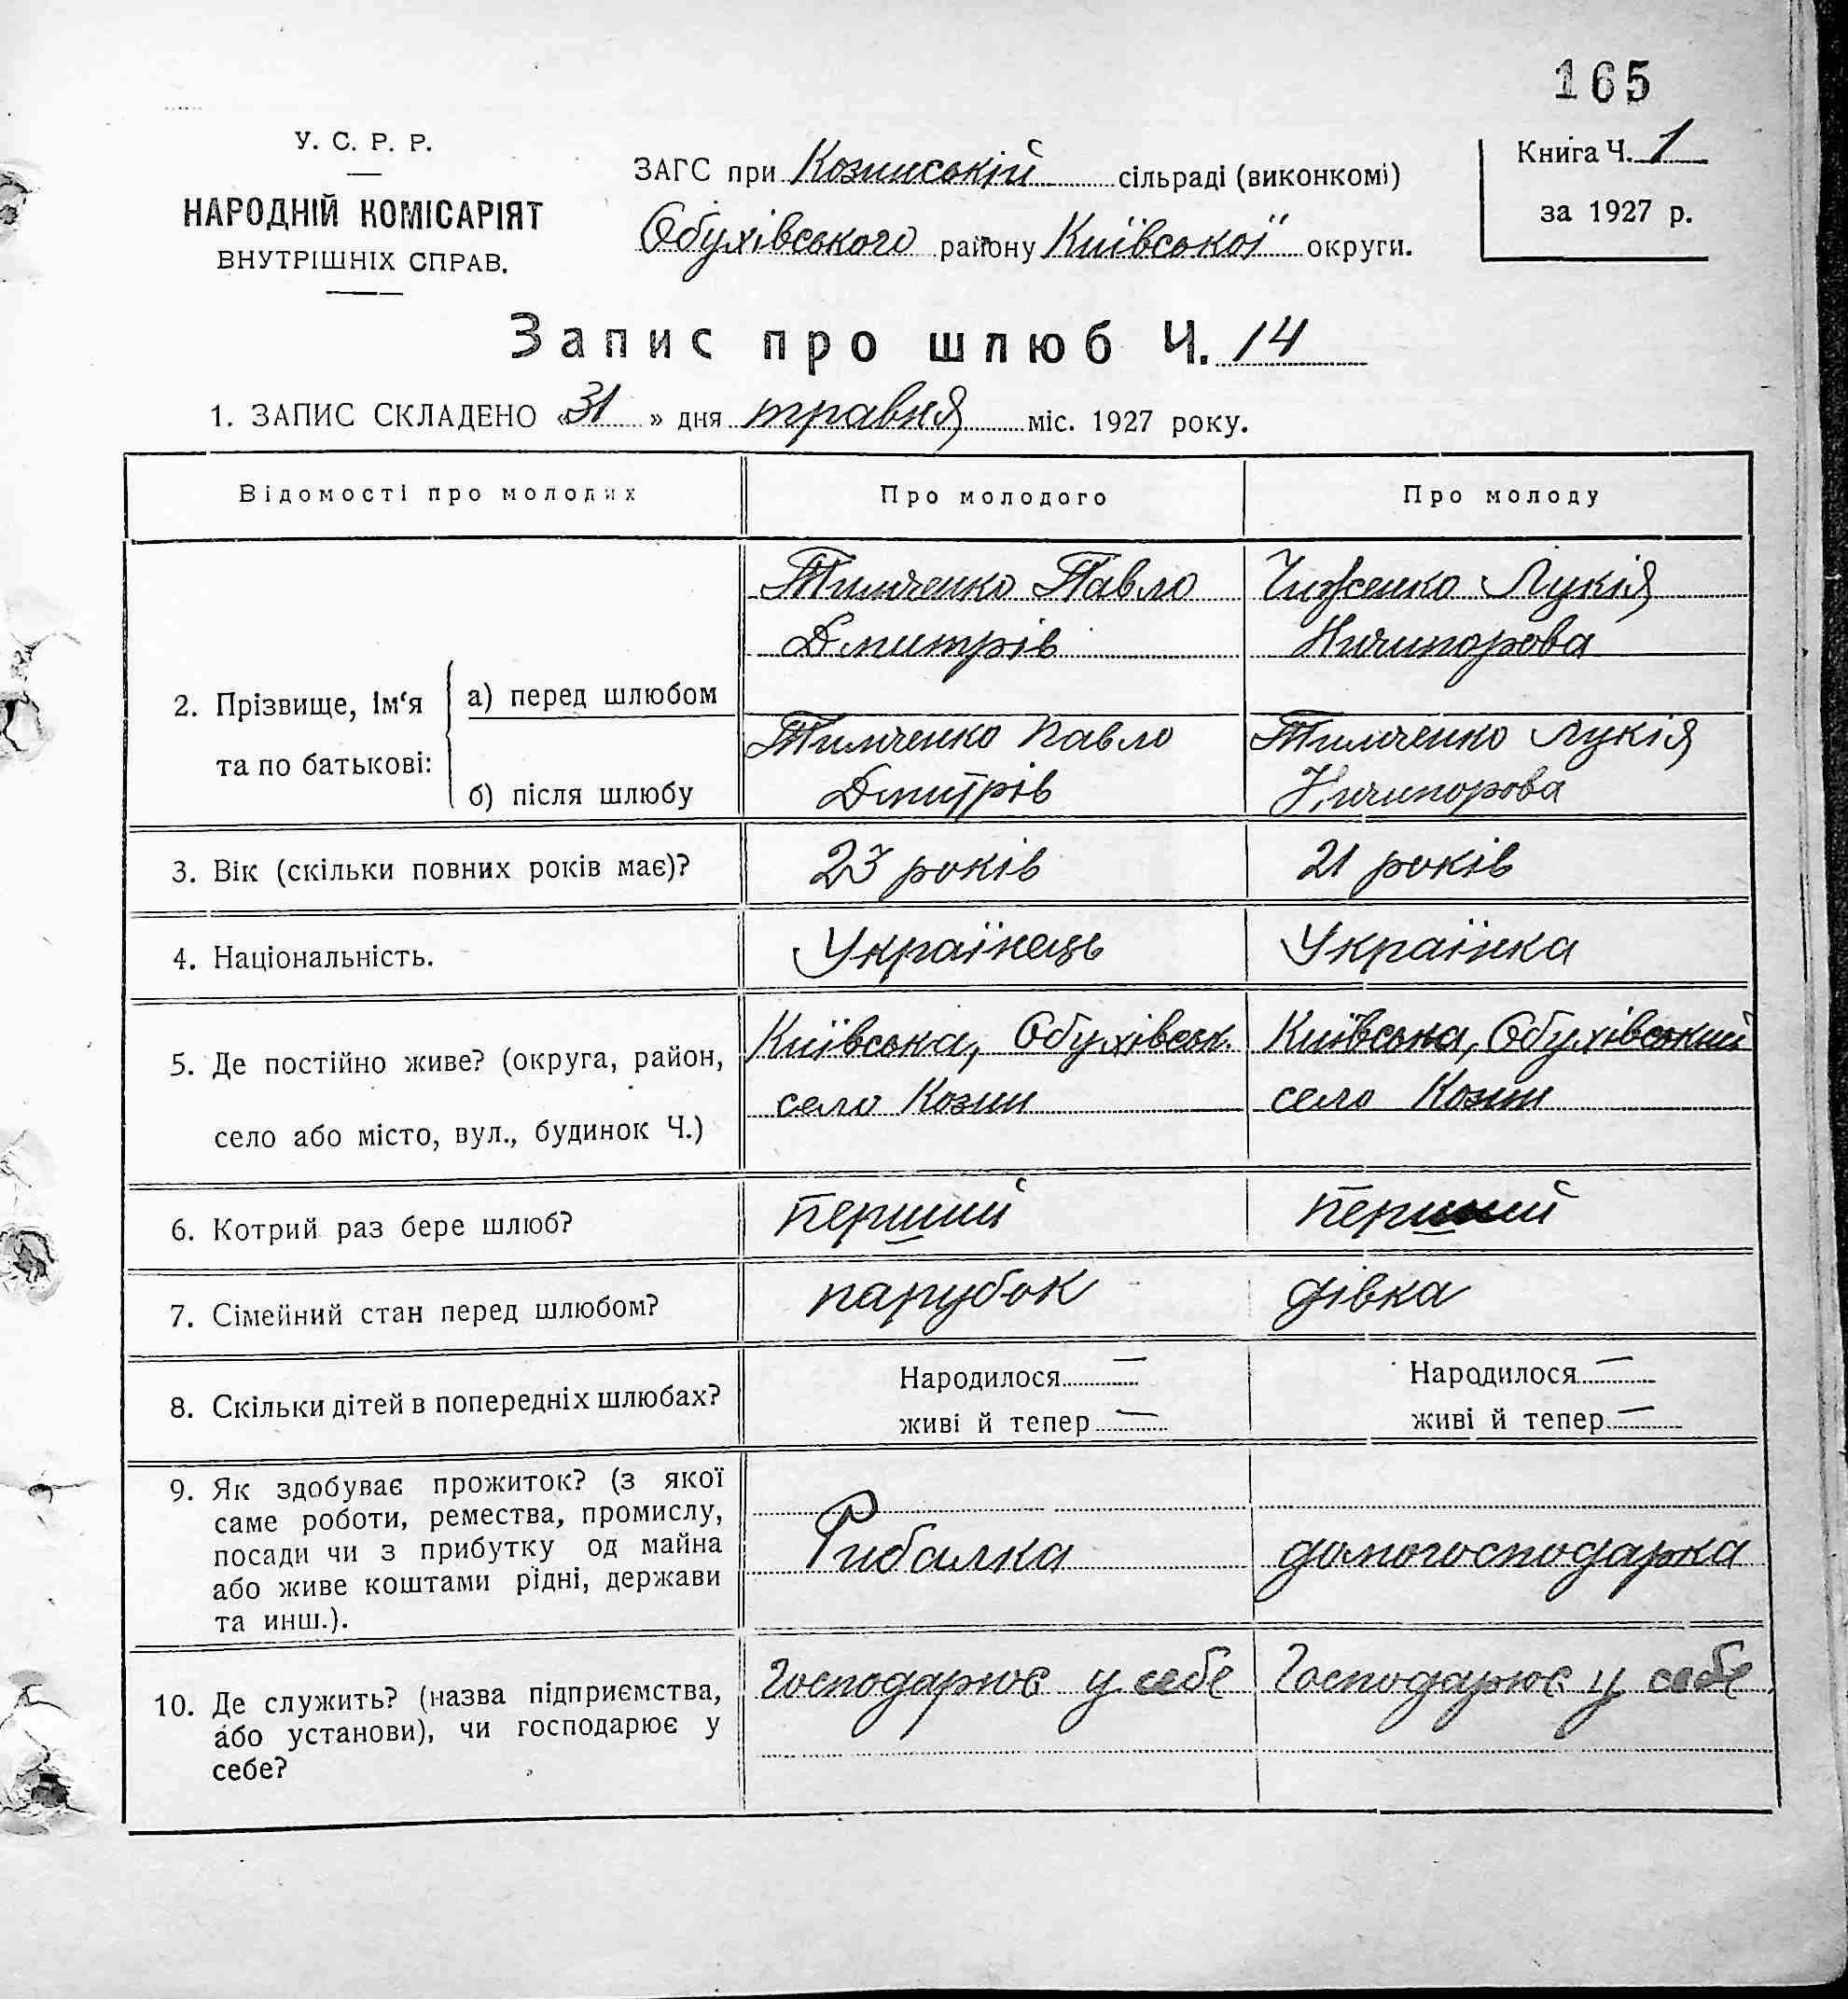 165
У. С. Р. Р.
НАРОДНІЙ КОМІСАРІЯТ
ВНУТРІШНІХ СПРАВ.
ЗАГС при Козинській сільраді (виконкомі)
Обухівського району Київської округи.
Книга Ч. 1
за 1927 р.
Запис про шлюб Ч. 14
1. ЗАПИС СКЛАДЕНО «31» дня травня міс. 1927 року.
Відомості про молодих
Про молодого
Про молоду
2. Прізвище, ім‘я
та по батькові:
а) перед шлюбом
Тимченко Павло
Дмитрів
Чиженко Лукія
Ничипорова
б) після шлюбу
Тимченко Павло
Дмитрів
Тимченко Лукія
Ничипорова
3. Вік (скільки повних років має)?
23 років
21 років
4. Національність.
Українець
Українка
5. Де постійно живе? (округа, район,
село або місто, вул., будинок Ч.)
Київська, Обухівськ.
село Козин
Київська, Обухівський
село Козин
6. Котрий раз бере шлюб?
Перший
Перший
7. Сімейний стан перед шлюбом?
парубок
дівка
8. Скільки дітей в попередніх шлюбах?
Народилося —
живі й тепер —
Народилося —
живі й тепер —
9. Як здобуває прожиток? (з якої
саме роботи, ремества, промислу,
посади чи з прибутку од майна
або живе коштами рідні, держави
та инш.).
Рибалка
домогосподарка
10. Де служить? (назва підприємства,
або установи), чи господарює у
себе?
Господарює у себе
Господарює у себе